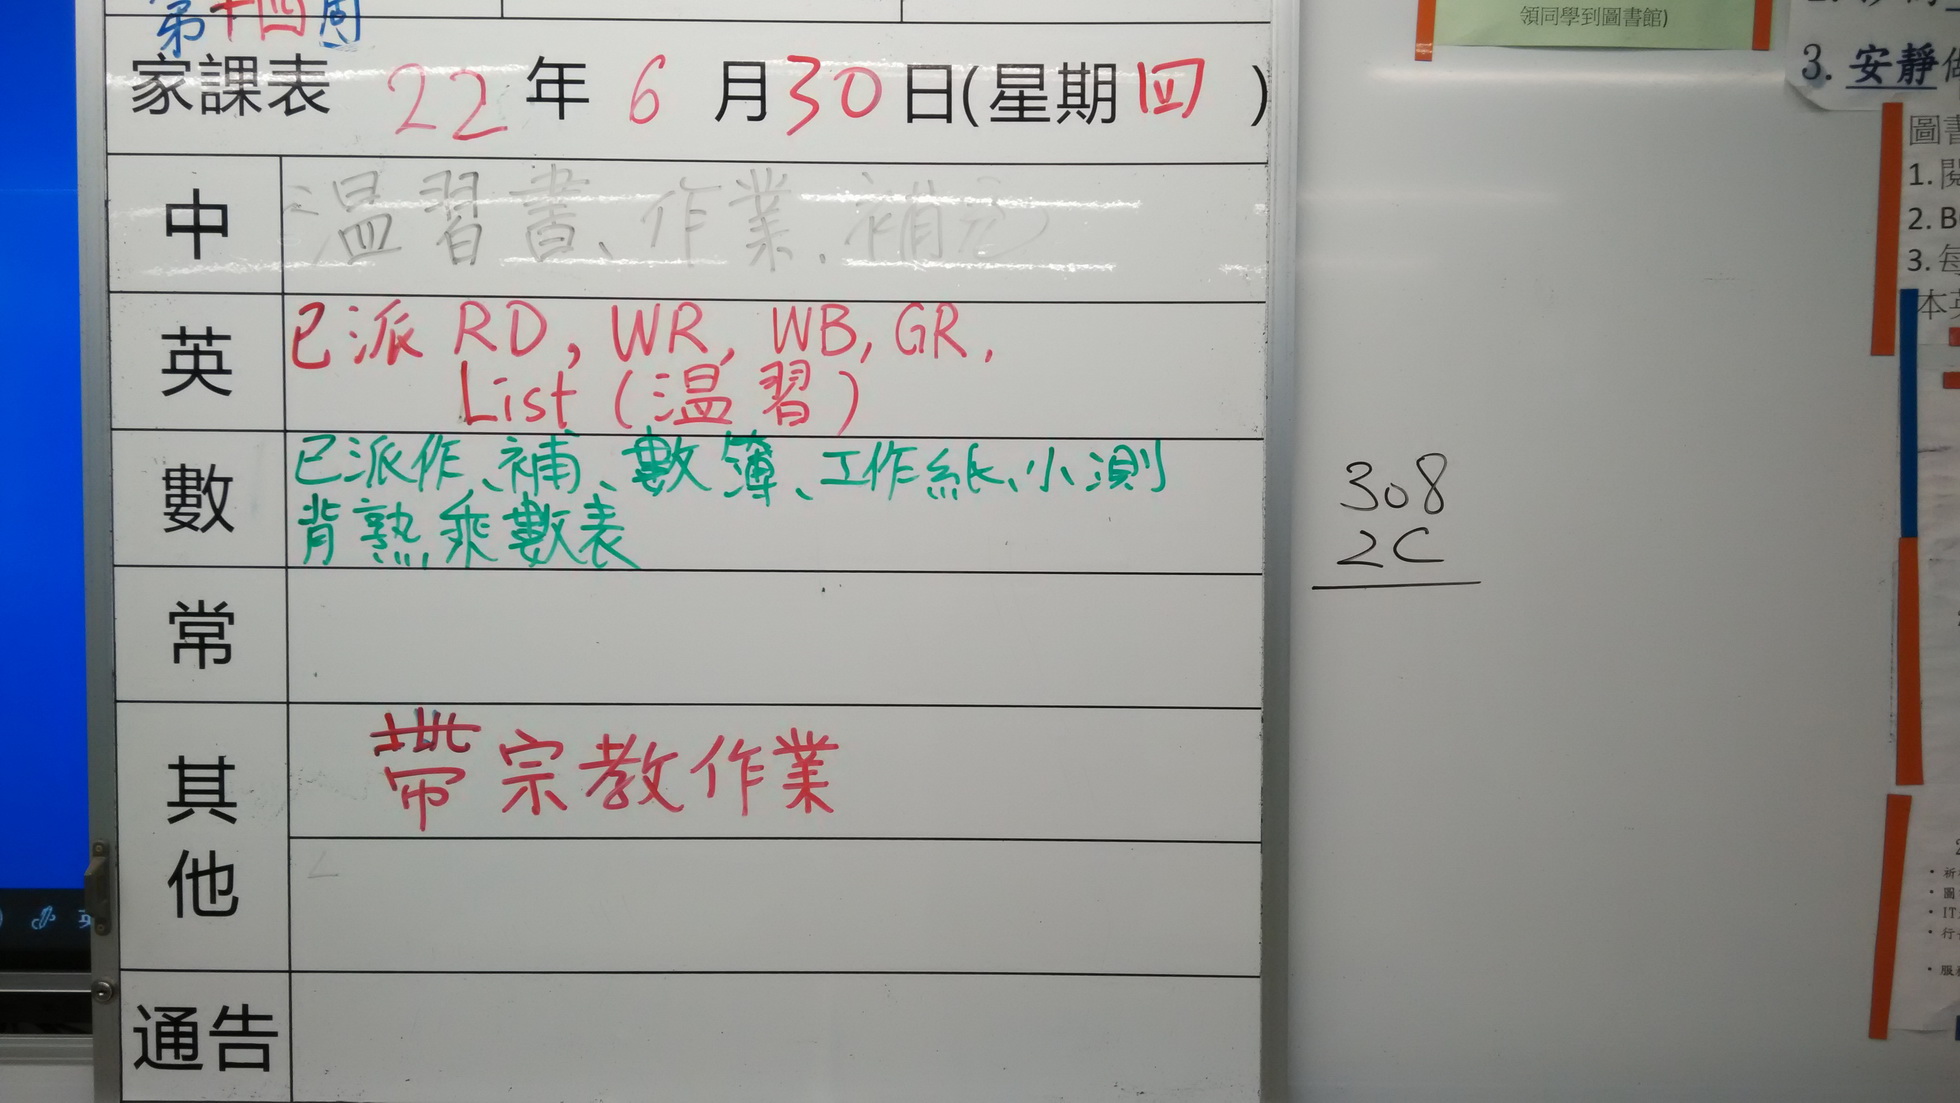 第十四周
家課表 22 年 6 月 30 日(星期四)
中
温習書、作業、補充
英
已派 RD, WR, WB, GR,
List (温習)
數
已派作、補、數簿、工作紙、小測
背熟乘數表
常
其他
帶宗教作業
通告
308
2C
領同學到圖書館)
3. 安靜
圖書
1. 閱
2. B
3. 每
本英
IT